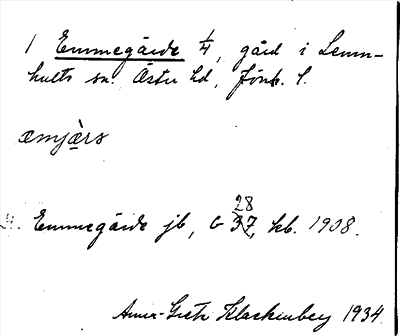 1 Emmegärde 1/4, gård i Lemn-
hults sn. Östra hd, Jönk. l.
æmjærs
Emmegärde jb, G 37, kb. 1908.
28
Anna-Greta Klackenberg 1934